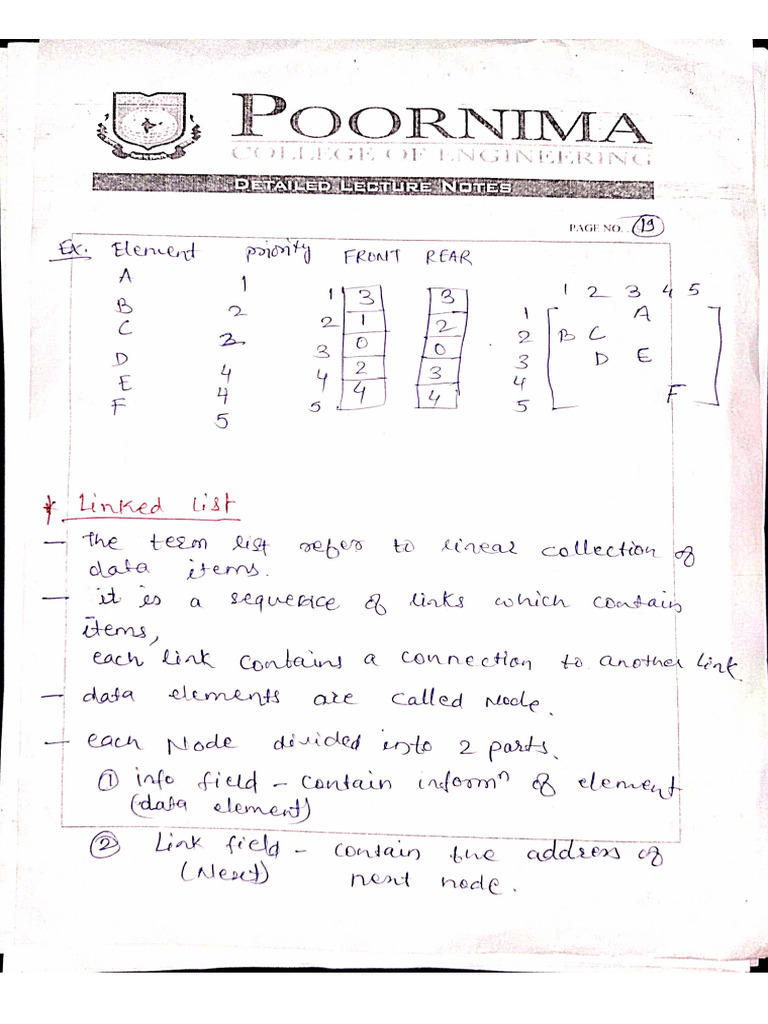 POORNIMA
COLLEGE OF ENGINEERING
DETAILED LECTURE NOTES
PAGE NO. 19
Ex. Element priority FRONT REAR
1 2 3 4 5
A 1 1 3 3 1 A
B 2 2 1 2 2 B C
C 2 3 0 0 3 D E
D 4 4 2 3 4
E 4 5 4 4 5 F
F 5
* Linked List
— the term list refer to linear collection of
data items.
— it is a sequence of links which contain
items,
each link contains a connection to another link.
— data elements are called Node.
— each Node divided into 2 parts.
① info field - contain informⁿ of element
(data element)
② Link field - contain the address of
(Next) next node.